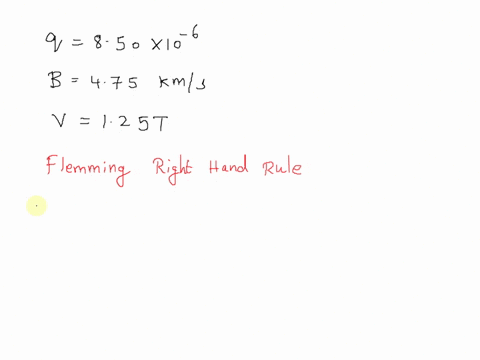 q = 8.50 ×10⁻⁶
B = 4.75 km/s
V = 1.25T
Flemming Right Hand Rule